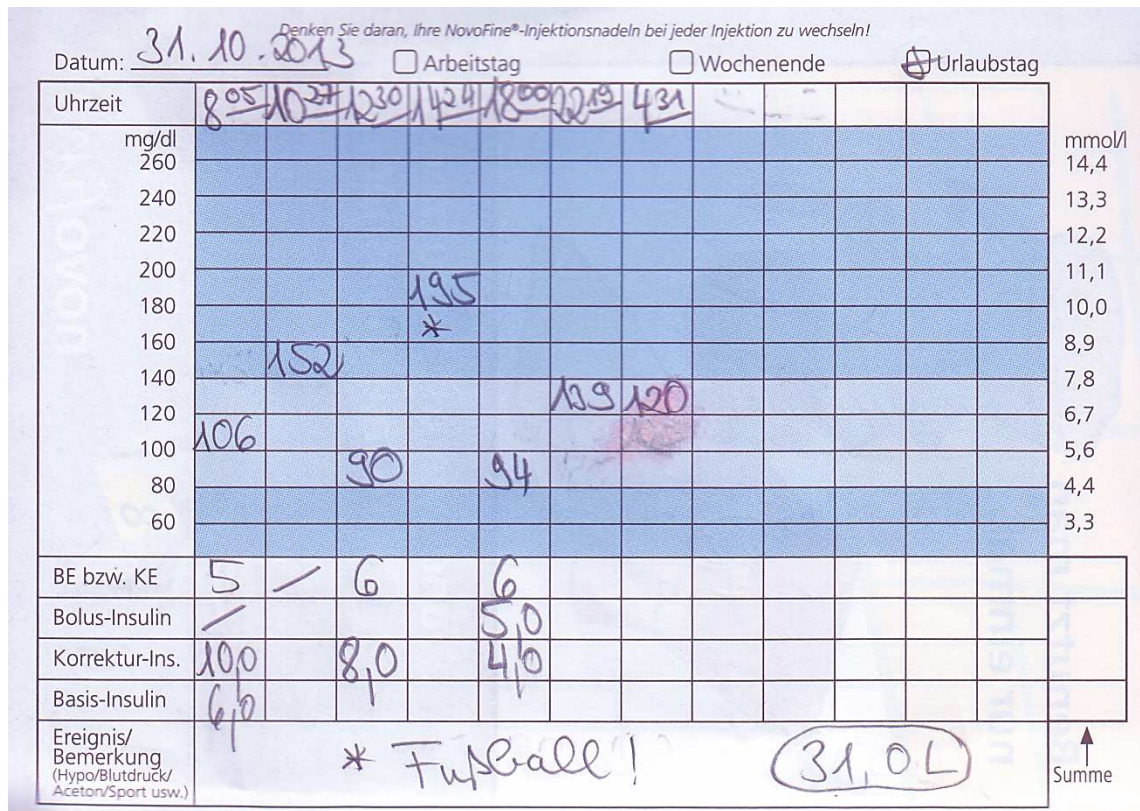 Denken Sie daran, Ihre NovoFine®-Injektionsnadeln bei jeder Injektion zu wechseln!
Datum: 31.10.2013 Arbeitstag Wochenende Urlaubstag
Uhrzeit 8 05 10 27 12 30 14 24 18 00 22 19 4 31
mg/dl mmol/l
260 14,4
240 13,3
220 12,2
200 11,1
195
180 10,0
*
160 8,9
152
140 7,8
139 120
120 6,7
106
100 5,6
90 94
80 4,4
60 3,3
BE bzw. KE 5 / 6 6
Bolus-Insulin / 5,0
Korrektur-Ins. 10,0 8,0 4,0
Basis-Insulin 6,0
Ereignis/
Bemerkung * Fußball! 31,0
(Hypo/Blutdruck/ Summe
Aceton/Sport usw.)